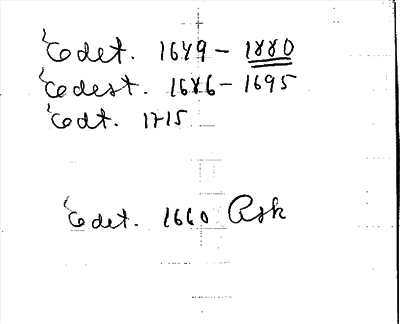 Codet. 1689 - 1880
Codest. 1686 - 1695
Codt. 1715
Codet. 1660 Ask